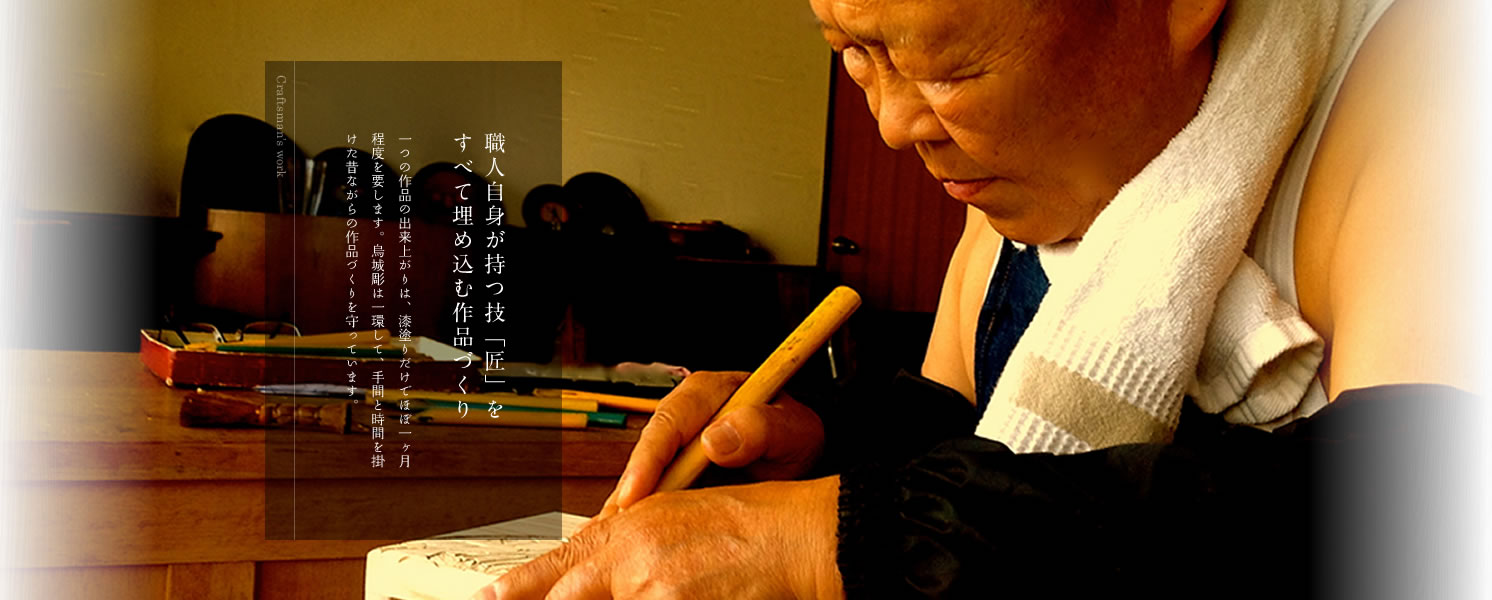 職人自身が持つ技「匠」を
すべて埋め込む作品づくり
一つの作品の出来上がりは、漆塗りだけでほぼ一ヶ月
程度を要します。烏城彫は一環して、手間と時間を掛
けた昔ながらの作品づくりを守っています。
Craftsman's work